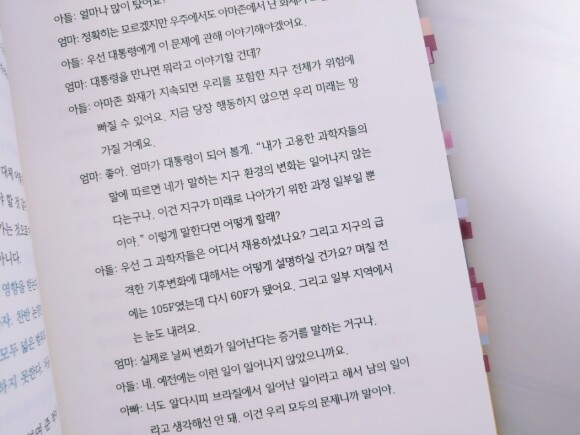 아들: 얼마나 많이 탔어요?
엄마: 정확히는 모르겠지만 우주에서도 아마존에서 난 화재가
아들: 우선 대통령에게 이 문제에 관해 이야기해야겠어요.
엄마: 대통령을 만나면 뭐라고 이야기할 건데?
아들: 아마존 화재가 지속되면 우리를 포함한 지구 전체가 위험에
빠질 수 있어요. 지금 당장 행동하지 않으면 우리 미래는 망
가질 거예요.
엄마: 좋아. 엄마가 대통령이 되어 볼게. “내가 고용한 과학자들의
말에 따르면 네가 말하는 지구 환경의 변화는 일어나지 않는
다는구나. 이건 지구가 미래로 나아가기 위한 과정 일부일 뿐
이야.” 이렇게 말한다면 어떻게 할래?
아들: 우선 그 과학자들은 어디서 채용하셨나요? 그리고 지구의 급
격한 기후변화에 대해서는 어떻게 설명하실 건가요? 며칠 전
에는 105F였는데 다시 60F가 됐어요. 그리고 일부 지역에서
는 눈도 내려요.
엄마: 실제로 날씨 변화가 일어난다는 증거를 말하는 거구나.
아들: 네. 예전에는 이런 일이 일어나지 않았으니까요.
아빠: 너도 알다시피 브라질에서 일어난 일이라고 해서 남의 일이
라고 생각해선 안 돼. 이건 우리 모두의 문제니까 말이야.